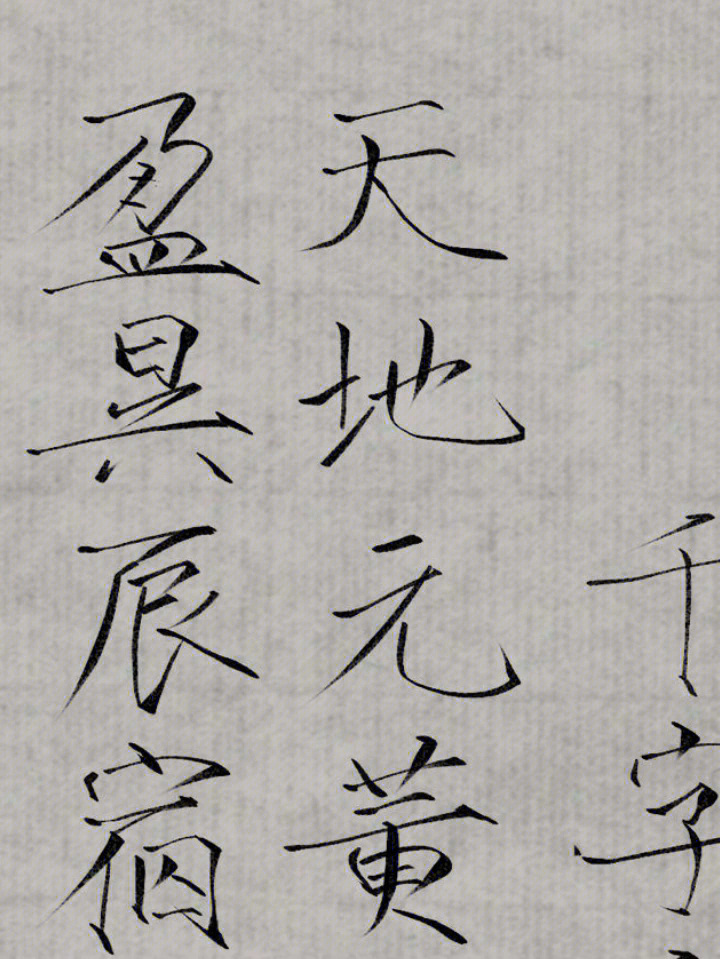 千字
天地元黄
盈昃辰宿